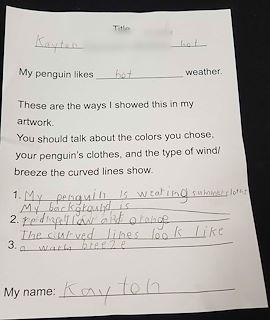 Title
Kayton hot
My penguin likes hot weather.
These are the ways I showed this in my
artwork.
You should talk about the colors you chose,
your penguin's clothes, and the type of wind/
breeze the curved lines show.
1. My penguin is weating summer clothes
My background is
2. red yellow and orange
The curved lines look like
3. a warm breeze
My name: Kayton